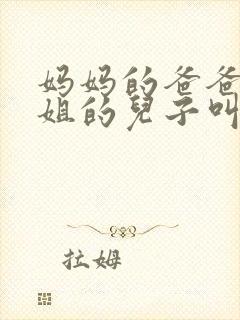 妈妈的爸爸
姐的兒子叫
拉姆